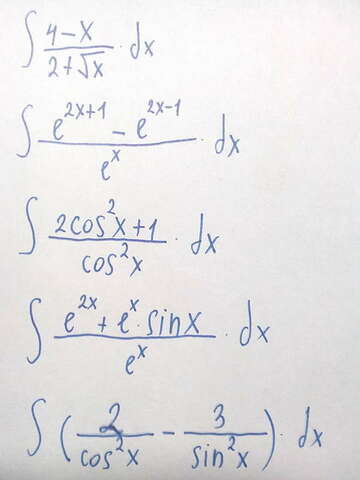 ∫ (4-x)/(2+√x) · dx
∫ (e^(2x+1) - e^(2x-1))/(e^x) · dx
∫ (2cos²x+1)/(cos²x) · dx
∫ (e^(2x) + e^x · sinx)/(e^x) · dx
∫ (2/(cos²x) - 3/(sin²x)) · dx